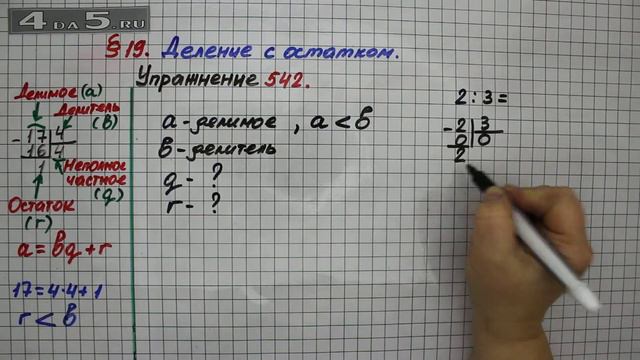 4 DA 5.RU
§ 19. Деление с остатком.
Упражнение 542.
Делимое (a)
Делитель (b)
- 17 | 4
16 | 4
1
Неполное частное (q)
Остаток (r)
a = bq + r
17 = 4·4+1
r < b
a - делимое , a < b
b - делитель
q - ?
r - ?
2 : 3 =
- 2 | 3
0 | 0
2